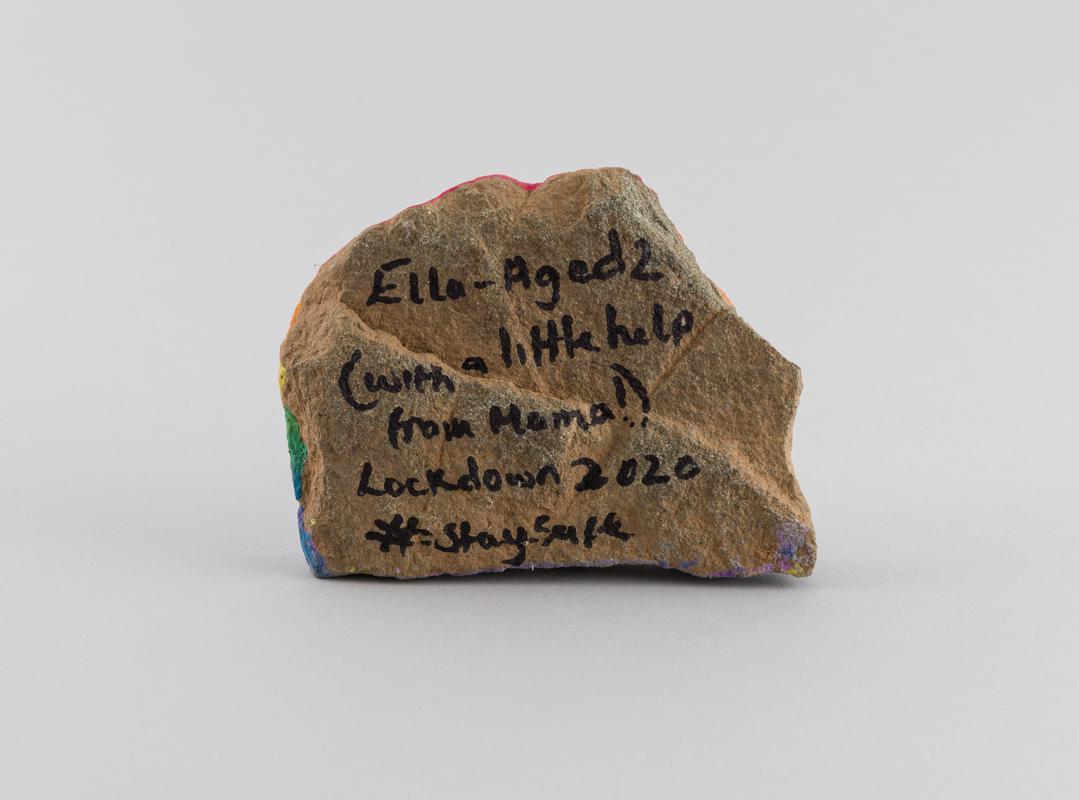 Ella-Aged 2
(with a little help
from Mama!)
Lockdown 2020
#StaySafe